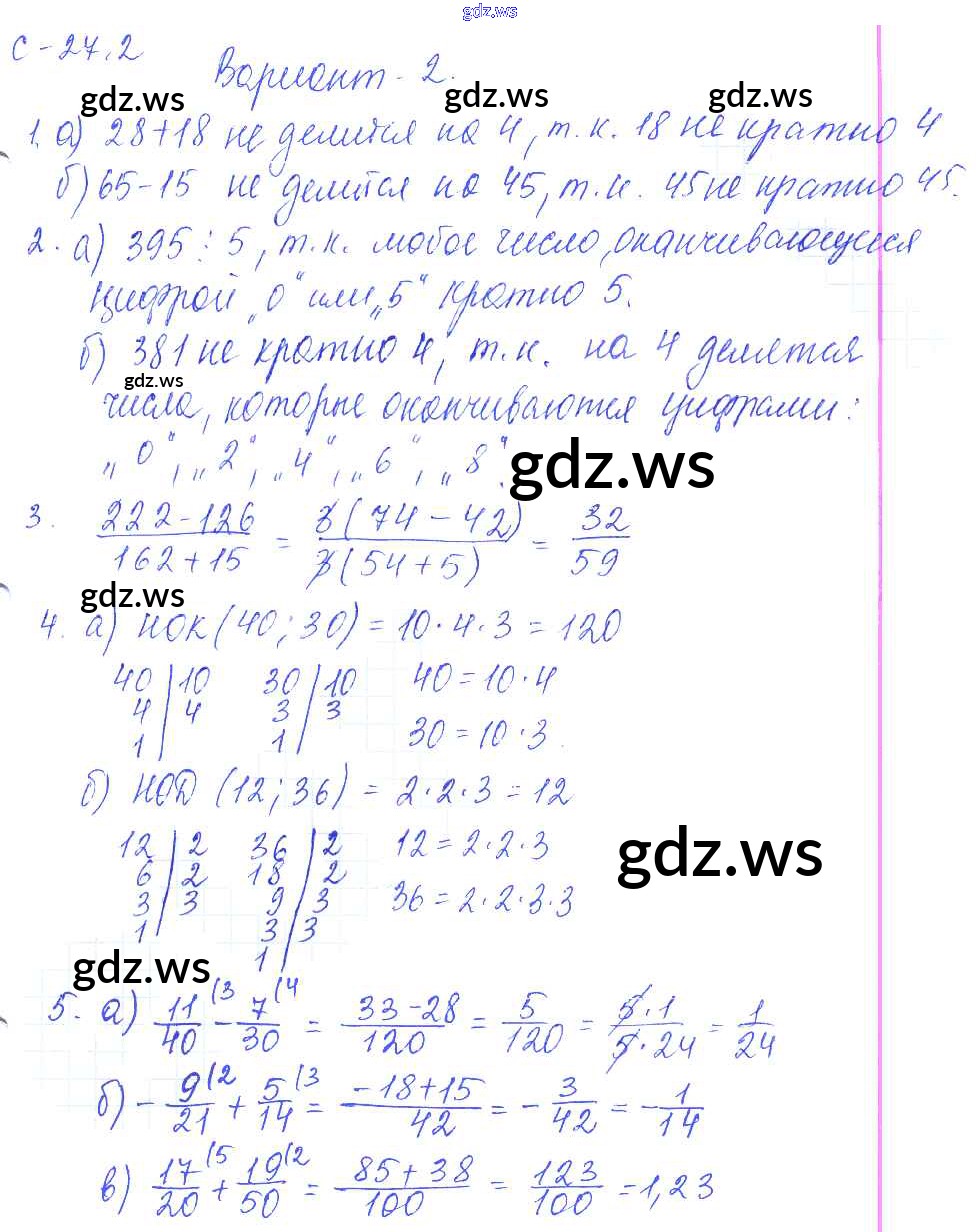 gdz.ws
С-27.2
Вариант-2.
gdz.ws gdz.ws gdz.ws
1. а) 28+18 не делится на 4, т.к. 18 не кратно 4
б) 65-15 не делится на 45, т.к. 45 не кратно 45.
2. а) 395 ⋮ 5, т.к. любое число, оканчивающееся
цифрой „0“ или „5“ кратно 5.
б) 381 не кратно 4, т.к. на 4 делятся
gdz.ws
числа, которые оканчиваются цифрами:
„0“, „2“, „4“, „6“, „8“.
gdz.ws
3. (222-126)/(162+15) = 3(74-42)/3(54+5) = 32/59
gdz.ws
4. а) НОК (40; 30) = 10·4·3 = 120
40|10 30|10 40=10·4
4|4 3|3
1| 1| 30=10·3
б) НОД (12; 36) = 2·2·3 = 12
12|2 36|2 12=2·2·3
gdz.ws
6|2 18|2
3|3 9|3 36=2·2·3·3
1| 3|3
1|
gdz.ws
5. а) 11/40 (3 - 7/30 (4 = (33-28)/120 = 5/120 = 5·1/5·24 = 1/24
б) -9/21 (2 + 5/14 (3 = (-18+15)/42 = -3/42 = -1/14
в) 17/20 (5 + 19/50 (2 = (85+38)/100 = 123/100 = 1,23